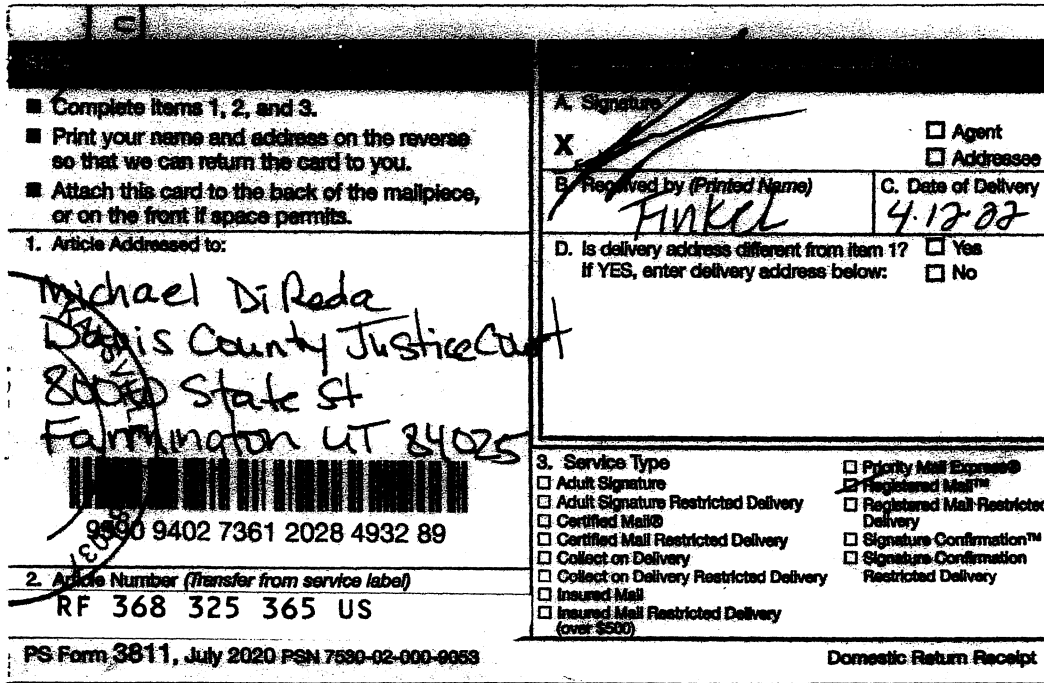 ■ Complete items 1, 2, and 3.
■ Print your name and address on the reverse
so that we can return the card to you.
■ Attach this card to the back of the mailpiece,
or on the front if space permits.
1. Article Addressed to:
Michael DiReda
Davis County Justice Court
800 State St
Farmington UT 84025
9590 9402 7361 2028 4932 89
2. Article Number (Transfer from service label)
RF 368 325 365 US
A. Signature
X
☐ Agent
☐ Addressee
B. Received by (Printed Name)
Finkel
C. Date of Delivery
4.12.22
D. Is delivery address different from item 1? ☐ Yes
If YES, enter delivery address below: ☐ No
3. Service Type
☐ Adult Signature
☐ Adult Signature Restricted Delivery
☐ Certified Mail®
☐ Certified Mail Restricted Delivery
☐ Collect on Delivery
☐ Collect on Delivery Restricted Delivery
☐ Insured Mail
☐ Insured Mail Restricted Delivery
(over $500)
☐ Priority Mail Express®
☐ Registered Mail™
☐ Registered Mail Restricted
Delivery
☐ Signature Confirmation™
☐ Signature Confirmation
Restricted Delivery
PS Form 3811, July 2020 PSN 7530-02-000-9053
Domestic Return Receipt